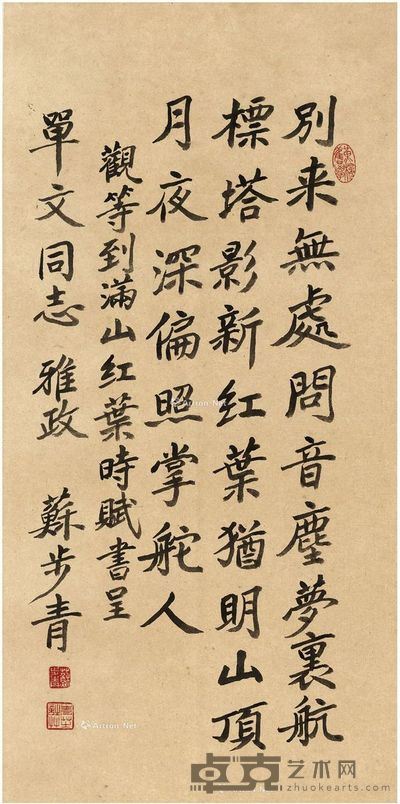 別来無處問音塵夢裏航
標塔影新紅葉猶明山頂
月夜深偏照掌舵人
觀等到滿山紅葉時賦書呈
單文同志雅政 蘇步青
Artron.Net
Artron.Net
卓克艺术网
zhuokearts.com